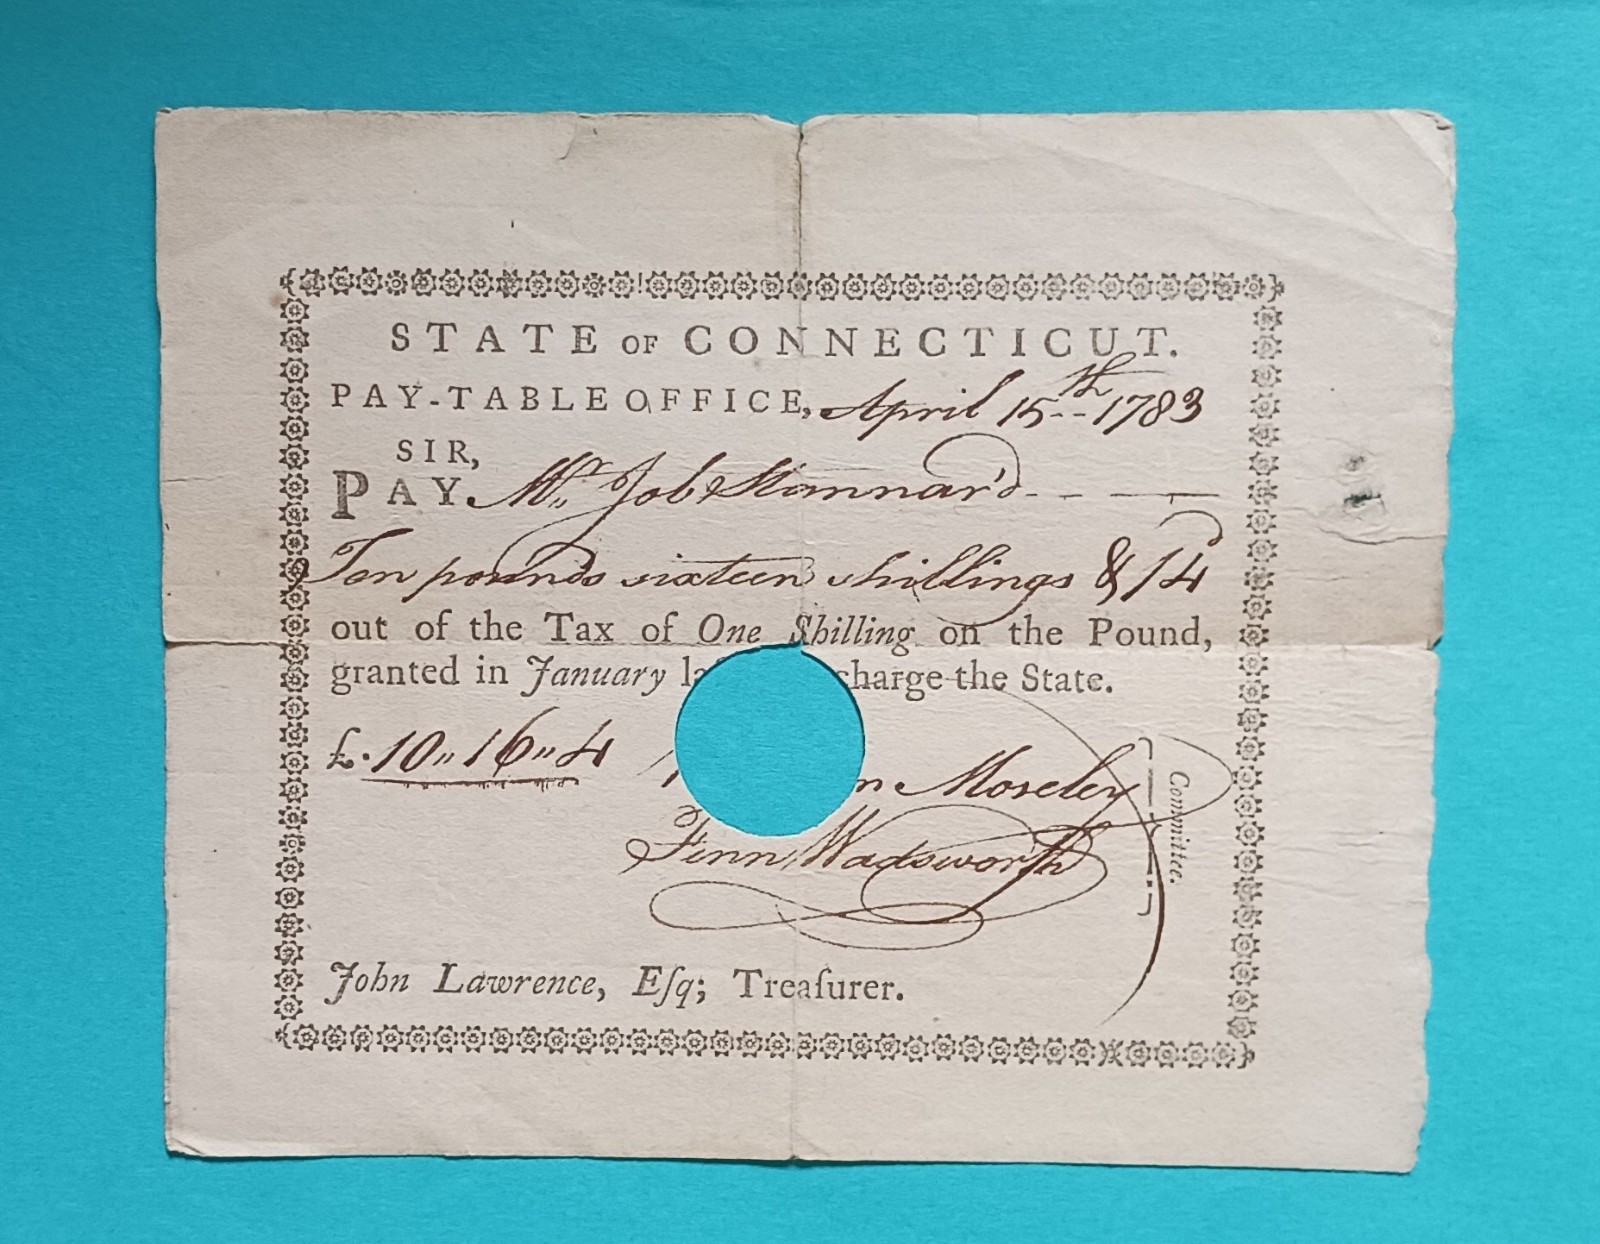 STATE OF CONNECTICUT.
PAY-TABLE OFFICE, April 15th 1783
SIR,
PAY Mr. Job Stannard
Ten pounds sixteen shillings & /4d
out of the Tax of One Shilling on the Pound,
granted in January charge the State.
£. 10,, 16,, 4
Moseley
Fenn Wadsworth
Committee.
John Lawrence, Eſq; Treaſurer.